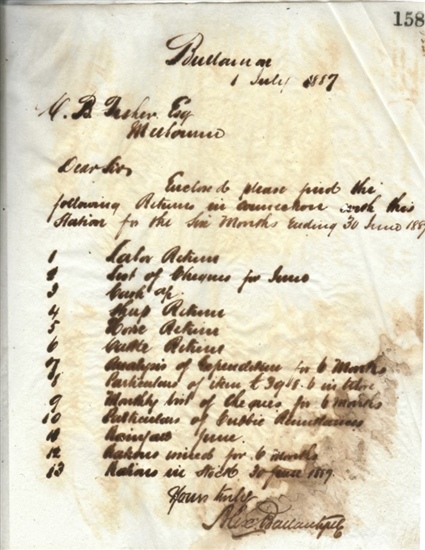 158
1 July 1887
C. B. Fisher Esq
Melbourne
Dear Sir
Enclosed please find the
following Returns in connection with this
Station for the Six Months Ending 30 June 1887
1 Labor Return
2 List of Cheques for June
3 Cash a/c
4 Sheep Return
5 Horse Return
6 Cattle Return
7 Analysis of Expenditure for 6 Months
8 Particulars of item £ in
9 Monthly list of Cheques for 6 Months
10 Particulars of Public
11 Rainfall June.
12 Rations issued for 6 months
13 Rations in Stock 30 June 1887.
Yours truly
Alex Ballantyne